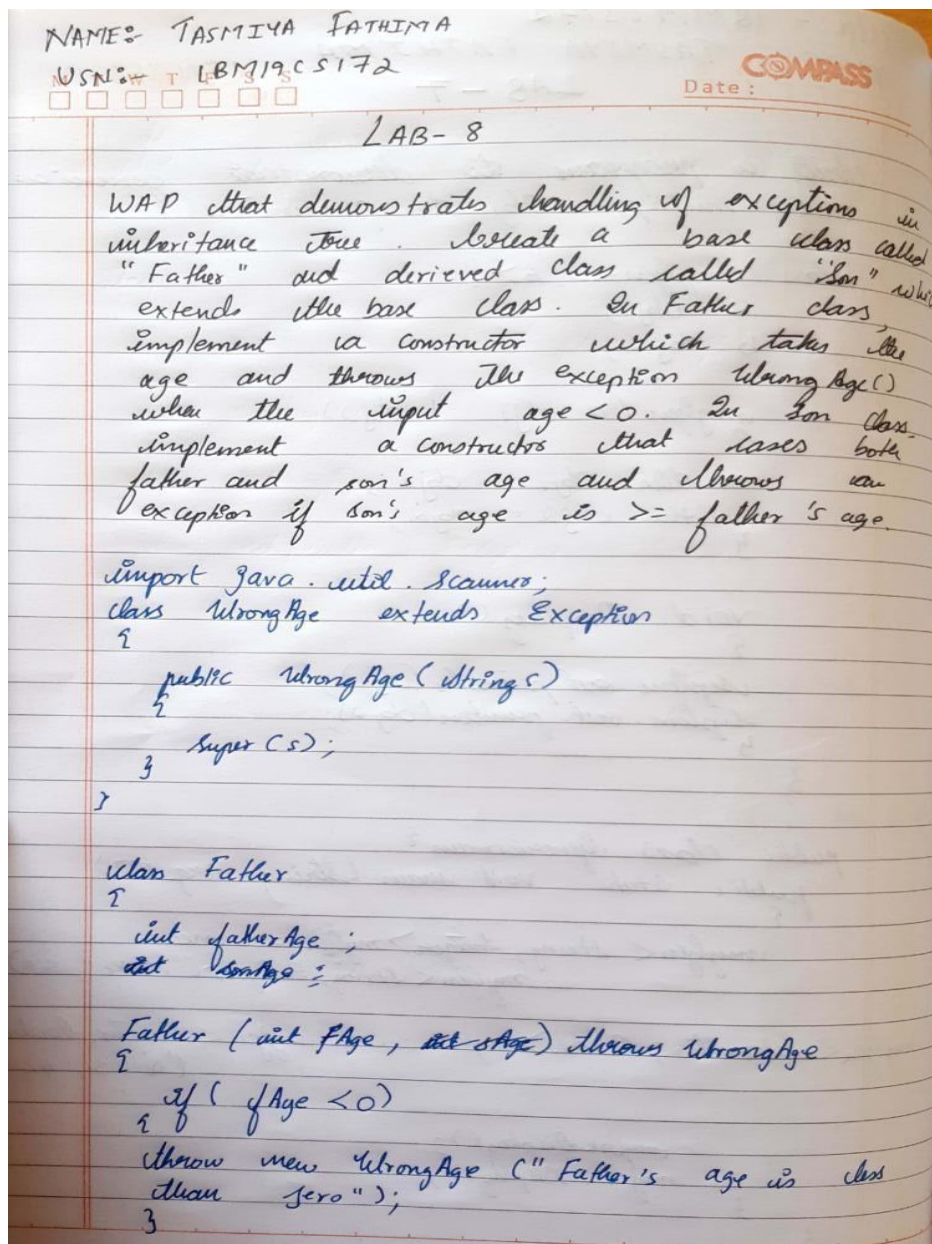 NAME:- TASMIYA FATHIMA
USN:- 1BM19CS172
COMPASS
Date :
LAB- 8
WAP that demonstrates handling of exceptions in
inheritance tree. Create a base class called
"Father" and derieved class called "Son" which
extends the base class. In Father class,
implement a constructor which takes the
age and throws the exception WrongAge()
when the input age < 0. In Son class
implement a constructor that cases both
father and son's age and throws an
exception if son's age is >= father's age.
import java.util.Scanner;
class WrongAge extends Exception
{
public WrongAge (String s)
{
super (s);
}
}
class Father
{
int fatherAge ;
int sonAge ;
Father ( int fAge , int sAge ) throws WrongAge
{
if ( fAge <0)
{
throw new WrongAge (" Father's age is less
than zero");
}